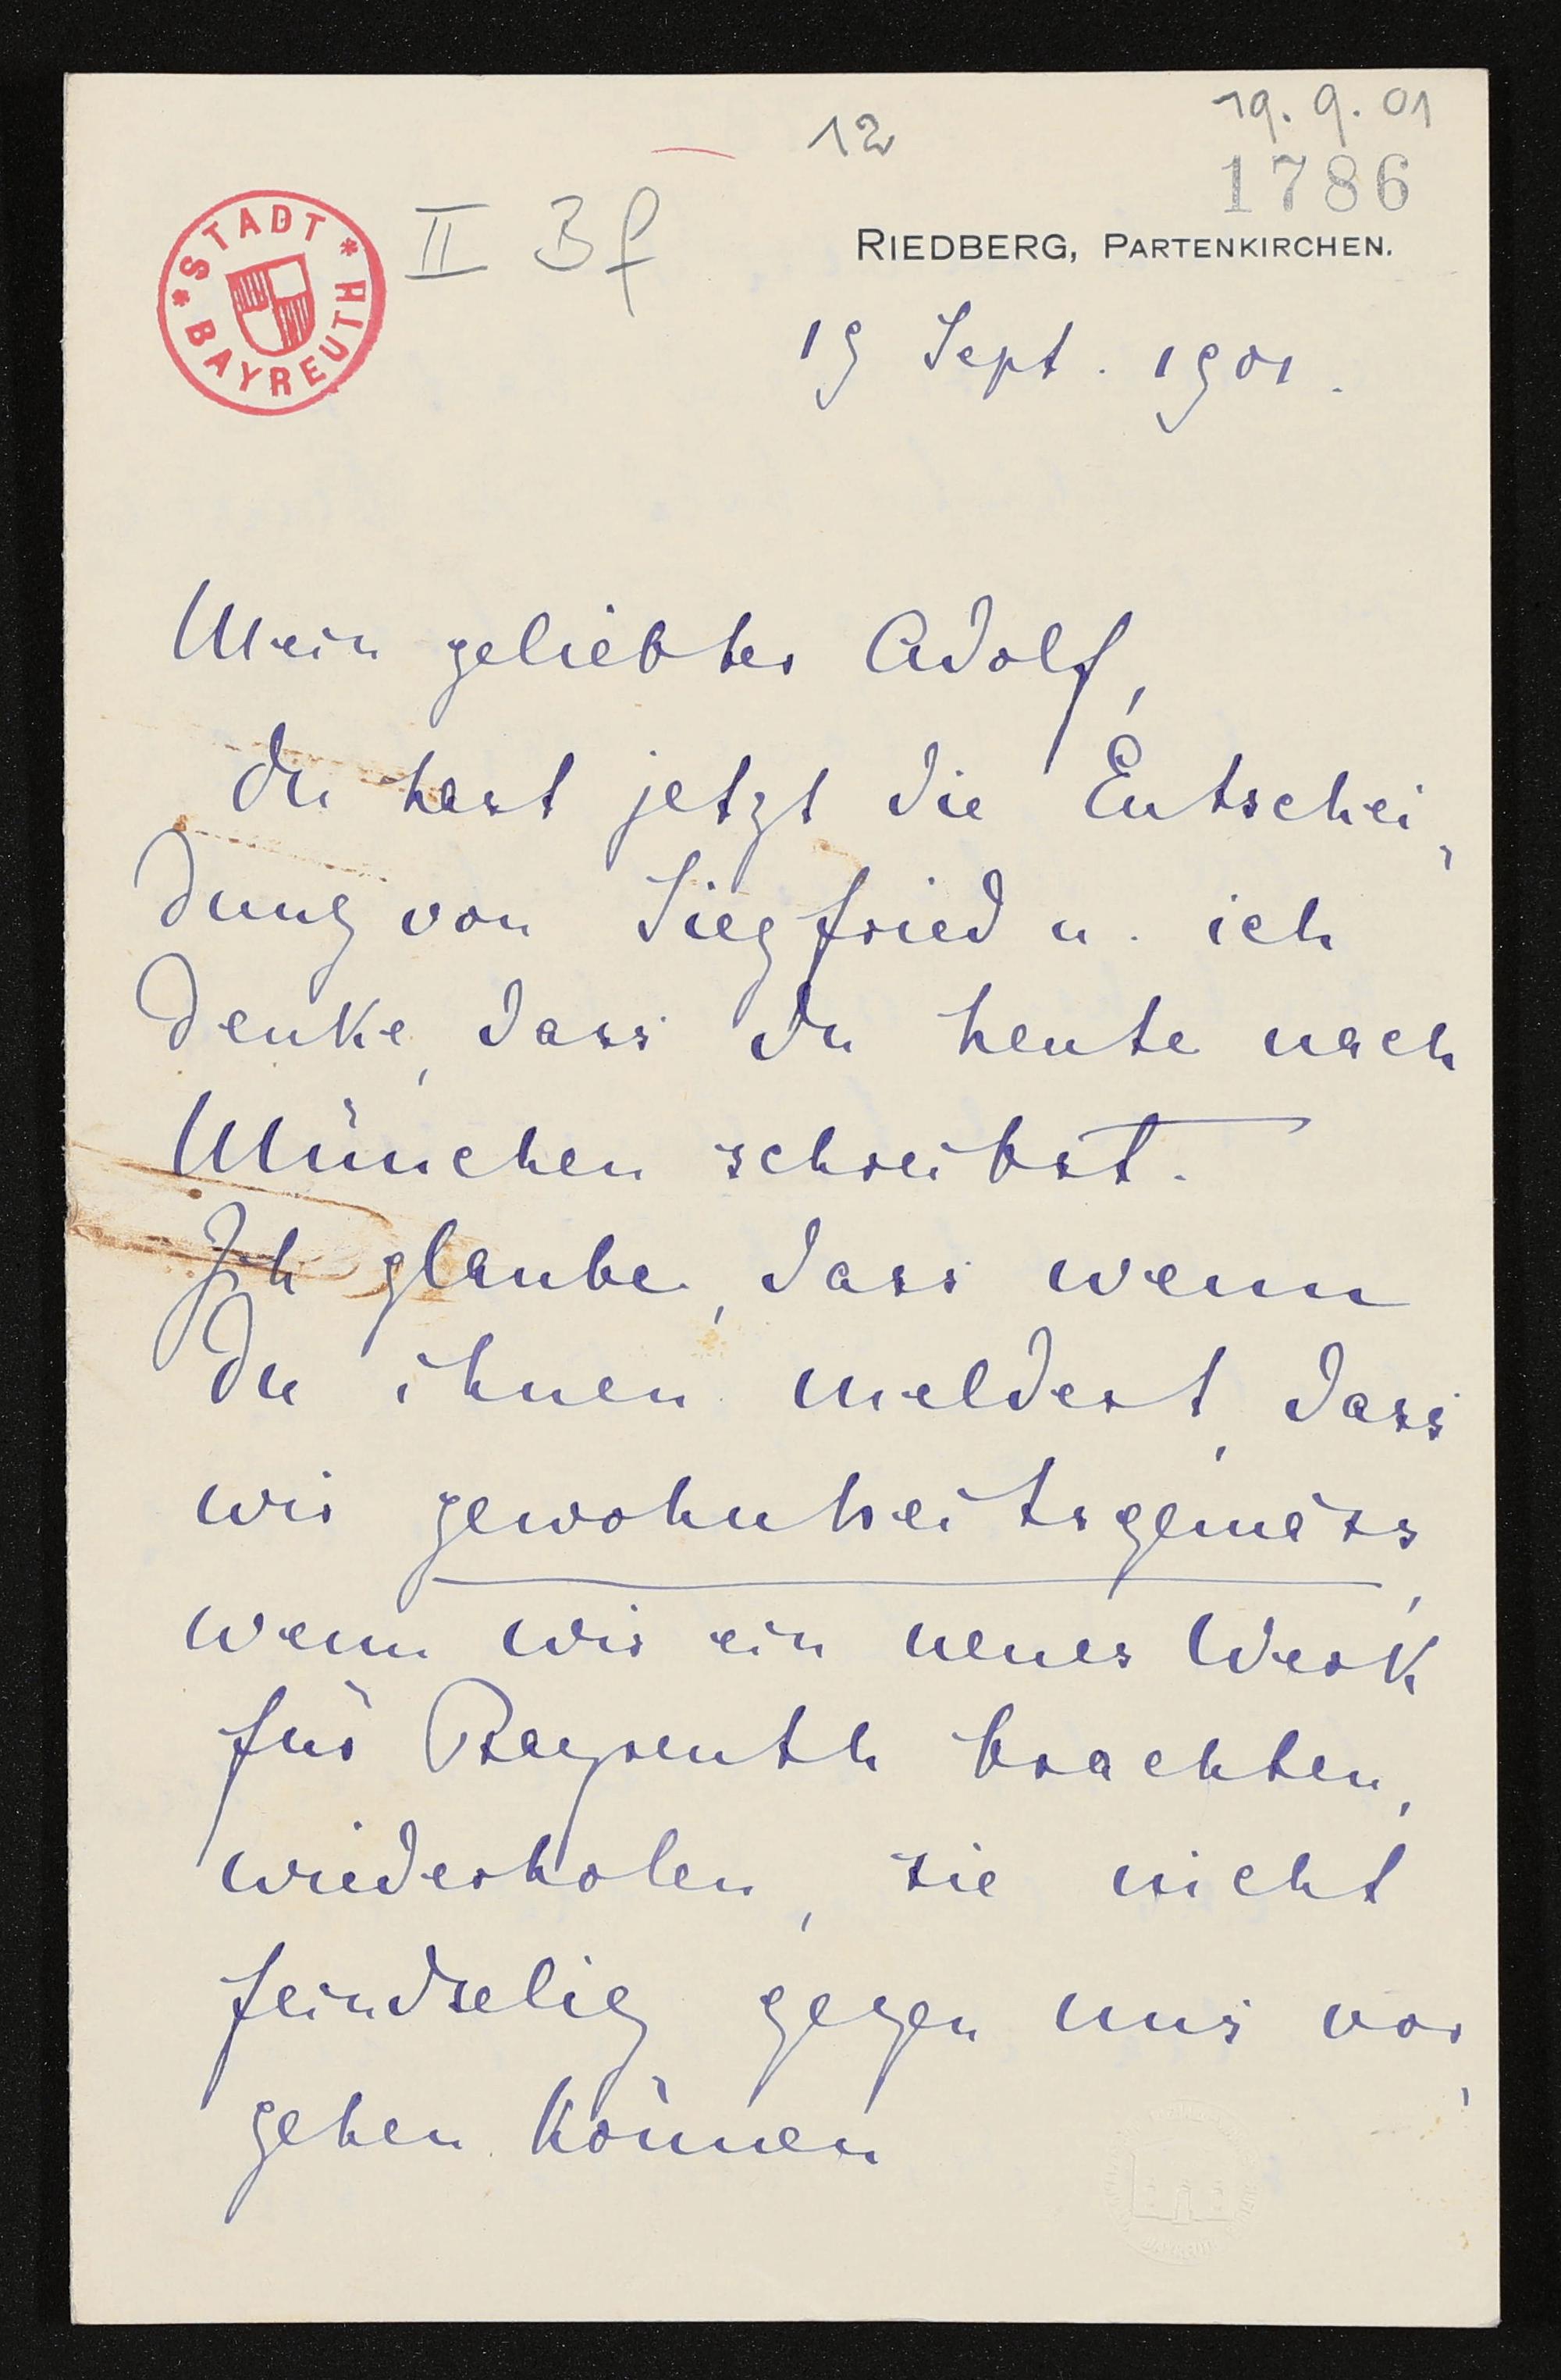 19. 9. 01
12
1786
STADT BAYREUTH
II 3f
RIEDBERG, PARTENKIRCHEN.
19 Sept. 1901.
Mein geliebter Adolf,
du hast jetzt die Entschei,
dung von Siegfried u. ich
denke, dass du heute nach
München schreibst.
Ich glaube, dass wenn
du ihnen meldest, dass
wir gewohnheitsgemäss,
wenn wir ein neues Werk
für Bayreuth brachten,
wiederholen, sie nicht
feindselig gegen uns vor,
gehen können